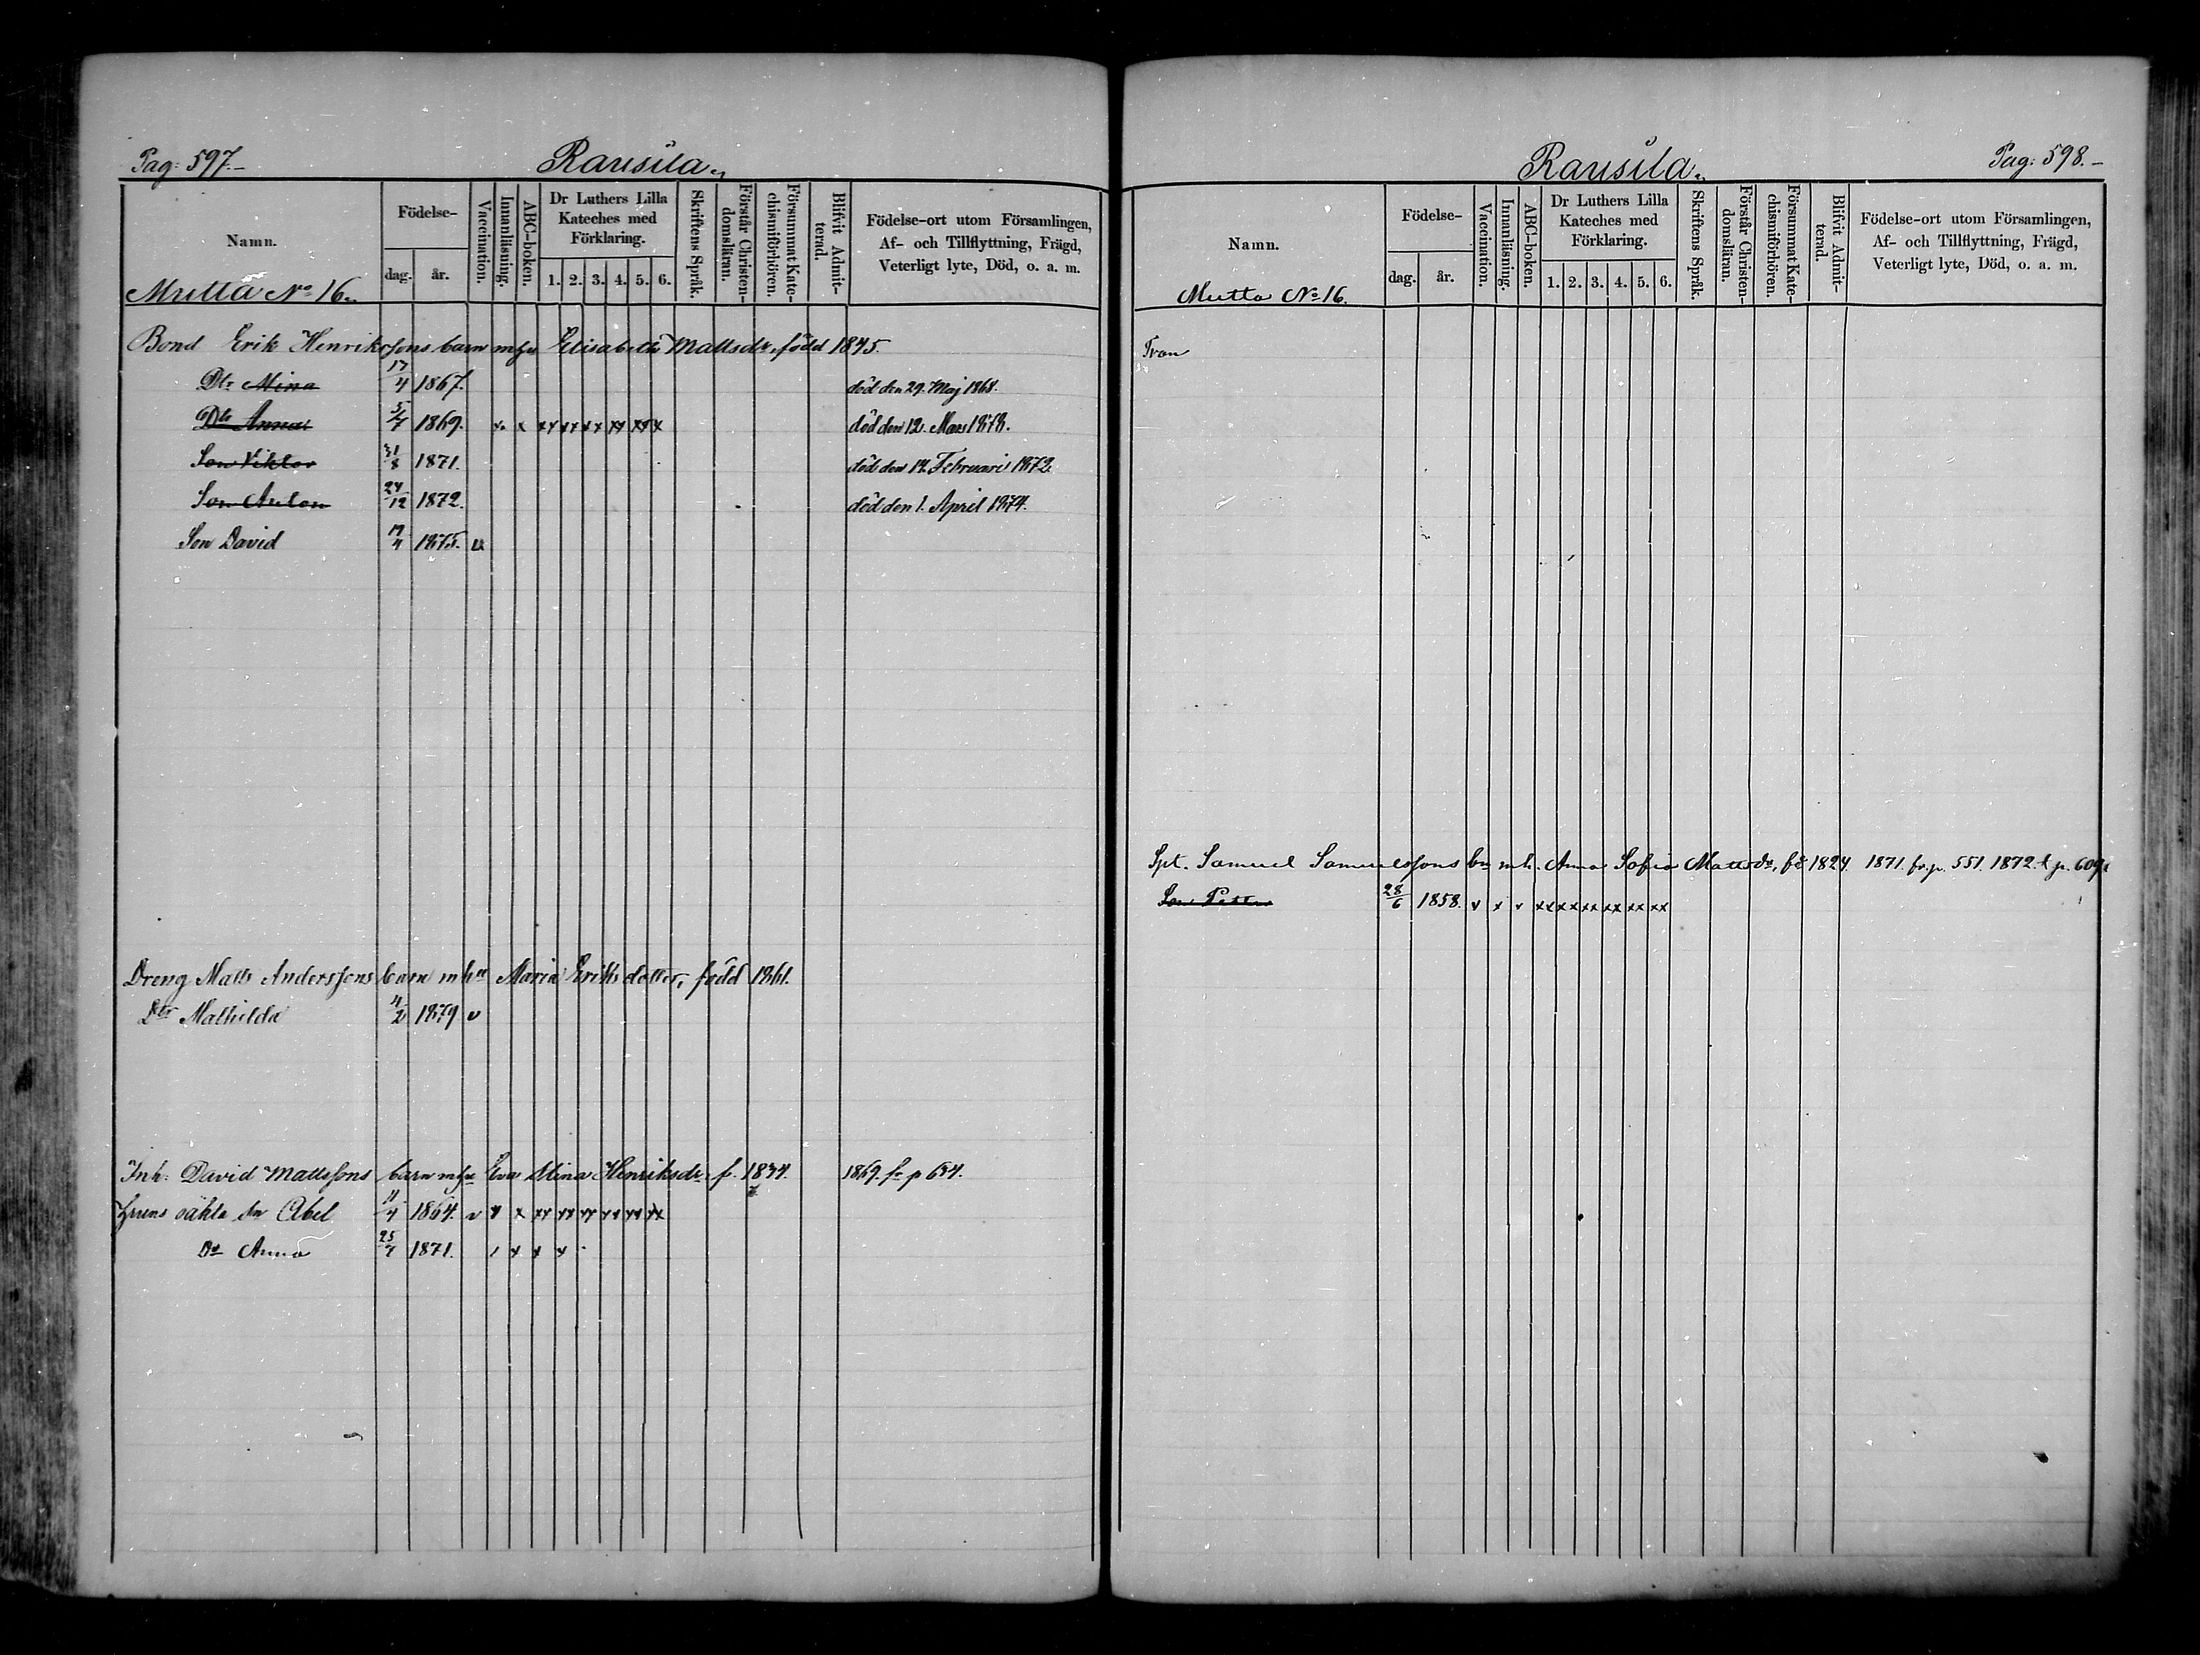 Pag: 597.–
Rausila.
Namn.
Födelse-
dag.
år.
Vaccination.
Innanläsning.
ABC-boken.
Dr Luthers Lilla
Kateches med
Förklaring.
1. 2. 3. 4. 5. 6.
Skriftens Språk.
Förstår Christen-
domsläran.
Försummat Kate-
chismiförhören.
Blifvit Admit-
terad.
Födelse-ort utom Församlingen,
Af- och Tillflyttning, Frägd,
Veterligt lyte, Död, o. a. m.
Mutta No 16.
Bond Erik Henrikssons barn m hu Elisabeth Mattsdr, född 1845.
Dtr Mina 17/4 1867. död den 29. Maj 1868.
Dtr Anna 5/7 1869. x x xx xx xx xx xx x död den 12. Mars 1878.
Son Viktor 31/8 1871. död den 12. Februari 1872.
Son Anton 24/12 1872. död den 1. April 1874.
Son David 19/4 1875. v
Dreng Matts Anderssons barn m hu Maria Eriksdotter, född 1861.
Dtr Mathilda 4/2 1879 v
Inh: David Mattssons barn m hu Eva Stina Henriksdr. f. 1834. 1869. fr p 634.
oäkta Abel 11/4 1864. v x x xx xx xx xx xx xx
Dr Anna 25/7 1871. / x x x
Pag: 598.–
Rausila.
Namn.
Födelse-
dag.
år.
Vaccination.
Innanläsning.
ABC-boken.
Dr Luthers Lilla
Kateches med
Förklaring.
1. 2. 3. 4. 5. 6.
Skriftens Språk.
Förstår Christen-
domsläran.
Försummat Kate-
chismiförhören.
Blifvit Admit-
terad.
Födelse-ort utom Församlingen,
Af- och Tillflyttning, Frägd,
Veterligt lyte, Död, o. a. m.
Mutta No 16.
Spt. Samuel Samuelssons bn m h. Anna Sofia Mattsdr, fd 1824. 1871. fr. p. 551. 1872. t p. 609.
Son Petter 28/6 1858. v x x xx xx xx xx xx xx